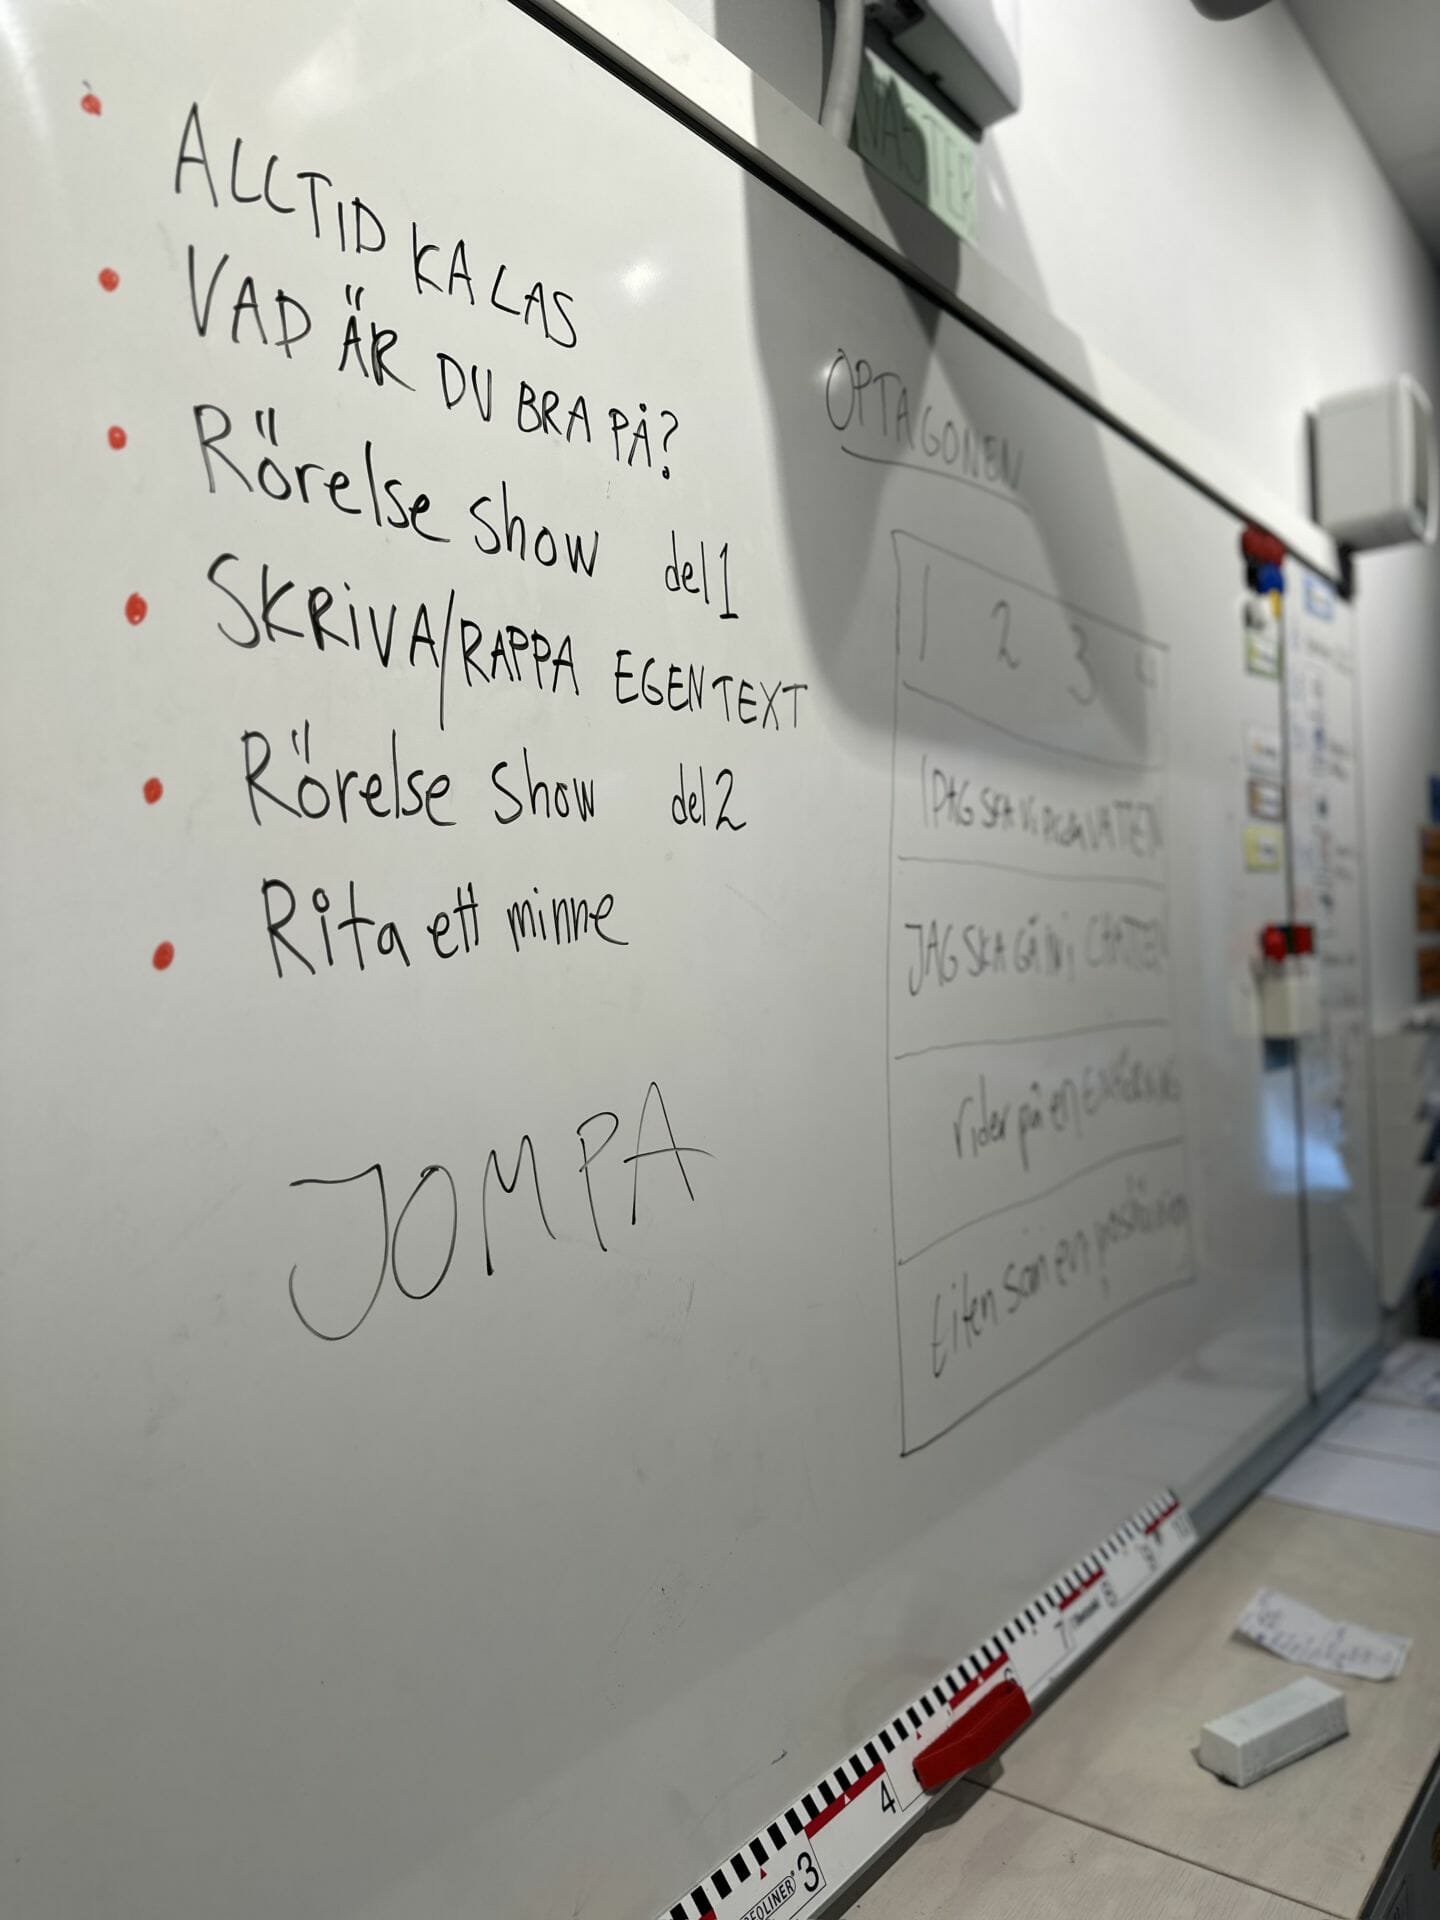 ALLTID KALAS
VAD ÄR DU BRA PÅ?
Rörelse show del 1
SKRIVA/RAPPA EGEN TEXT
Rörelse show del 2
Rita ett minne
JOMPA
NÄSTER
OPTAGONEN
1 2 3 4
IDAG SKA VI VATTEN
JAG SKA GÅ IN i CHATTEN
rider på en ENHÖRNING
liten som en
3
4
6
7
8